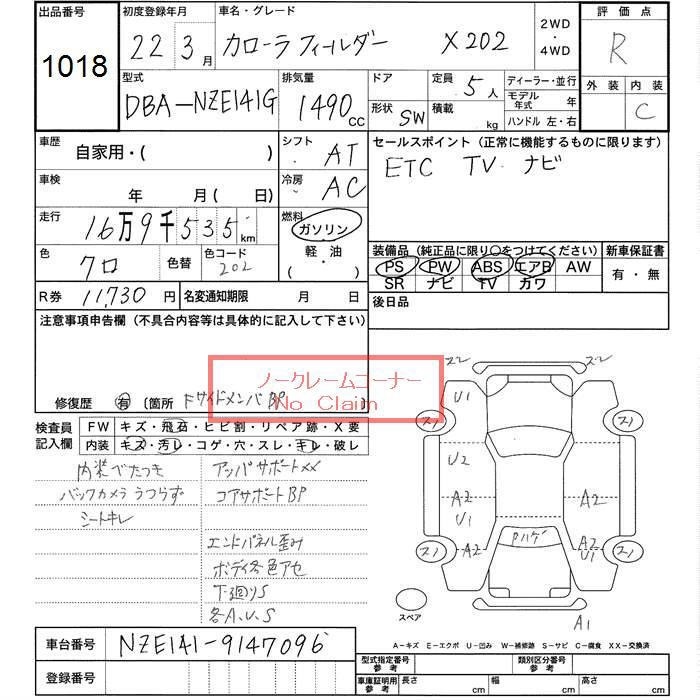 出品番号 初度登録年月 車名・グレード 2WD・4WD 評価点
1018 22 3月 カローラフィールダー X202 R
型式 排気量 ドア 定員 5人 ディーラー・並行 外装 内装
DBA-NZE141G 1490cc 形状 SW 積載 kg モデル年式 年 C
ハンドル 左・右
車歴 自家用・( ) シフト AT セールスポイント (正常に機能するものに限ります)
車検 年 月(日) 冷房 AC ETC TV ナビ
走行 16万9千535km 燃料 ガソリン・軽・油・( )
色 クロ 色替 色コード 202 装備品 (純正品に限り○をつけてください) 新車保証書
PS PW ABS エアB AW 有・無
SR ナビ TV カワ
R券 11,730円 名変通知期限 月 日 後日品
注意事項申告欄 (不具合内容等は具体的に記入して下さい)
ノークレームコーナー
No Claim
修復歴 有 〔箇所 FサイドメンバBP
検査員記入欄 FW キズ・飛石・ヒビ割・リペア跡・X要
内装 キズ・汚レ・コゲ・穴・スレ・キレ・破レ
内装べたつき アッパサポートXX
バックカメラうつらず コアサポートBP
シートキレ
エンドパネル歪み
ボディ各色アセ
下廻りS
各A.U.S
ズ2 ズ2
U1
ズ1 ズ1
U2
A2 A2
U1
ズ1 A2 Pハゲ A2 U1 ズ1
スペア A1
A-キズ E-エクボ U-凹み W-補修跡 S-サビ C-腐食 XX-交換済
車台番号 NZE141-9147096
登録番号
型式指定番号 参考 類別区分番号 参考
車庫証明用 参考 長さ cm 幅 cm 高さ cm